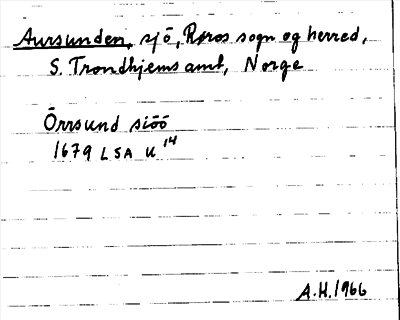 Aursunden, sjö, Røros sogn og herred,
S. Trondhjems amt, Norge
Örrsund siöö
1679 LSA U 14
A.H. 1966